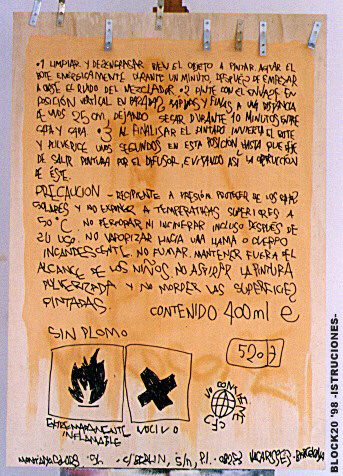 •1 LIMPIAR Y DESENGRASAR BIEN EL OBJETO A PINTAR. AGITAR EL
BOTE ENERGICAMENTE DURANTE UN MINUTO, DESPUES DE EMPESAR
A OIRSE EL RUIDO DEL MEZCLADOR. •2 PINTE CON EL ENVASE EN
POSICIÓN VERTICAL EN PASADAS RAPIDAS Y FINAS A UNA DISTANCIA
DE UNOS 25 cm, DEJANDO SECAR DURANTE 10 MINUTOS ENTRE
CAPA Y CAPA. •3 AL FINALISAR EL PINTADO INVIERTA EL BOTE
Y PULVERICE UNOS SEGUNDOS EN ESTA POSICIÓN HASTA QUE DEJE
DE SALIR PINTURA POR EL DIFUSOR, EVITANDO ASÍ LA OBTRUCCION
DE ÉSTE.
PRECAUCION - RECIPIENTE A PRESIÓN PROTEGER DE LOS RAYOS
SOLARES Y NO EXPONER A TEMPERATURAS SUPERIORES A
50°C. NO PERFORAR NI INCINERAR INCLUSO DESPUÉS DE
SU USO. NO VAPORIZAR HACIA UNA LLAMA O CUERPO
INCANDESCENTE. NO FUMAR. MANTENER FUERA DEL
ALCANCE DE LOS NIÑOS. NO ASPIRAR LA PINTURA
PULVERIZADA Y NO MORDER LAS SUPERFICIES
PINTADAS.
CONTENIDO 400ml e
SIN PLOMO
520
EXTREMADAMENTE
INFLAMABLE
NOCIVO
C/BERLIN, S/N, P.I.
BARCELONA
BLOCK20 '98 -ISTRUCIONES-